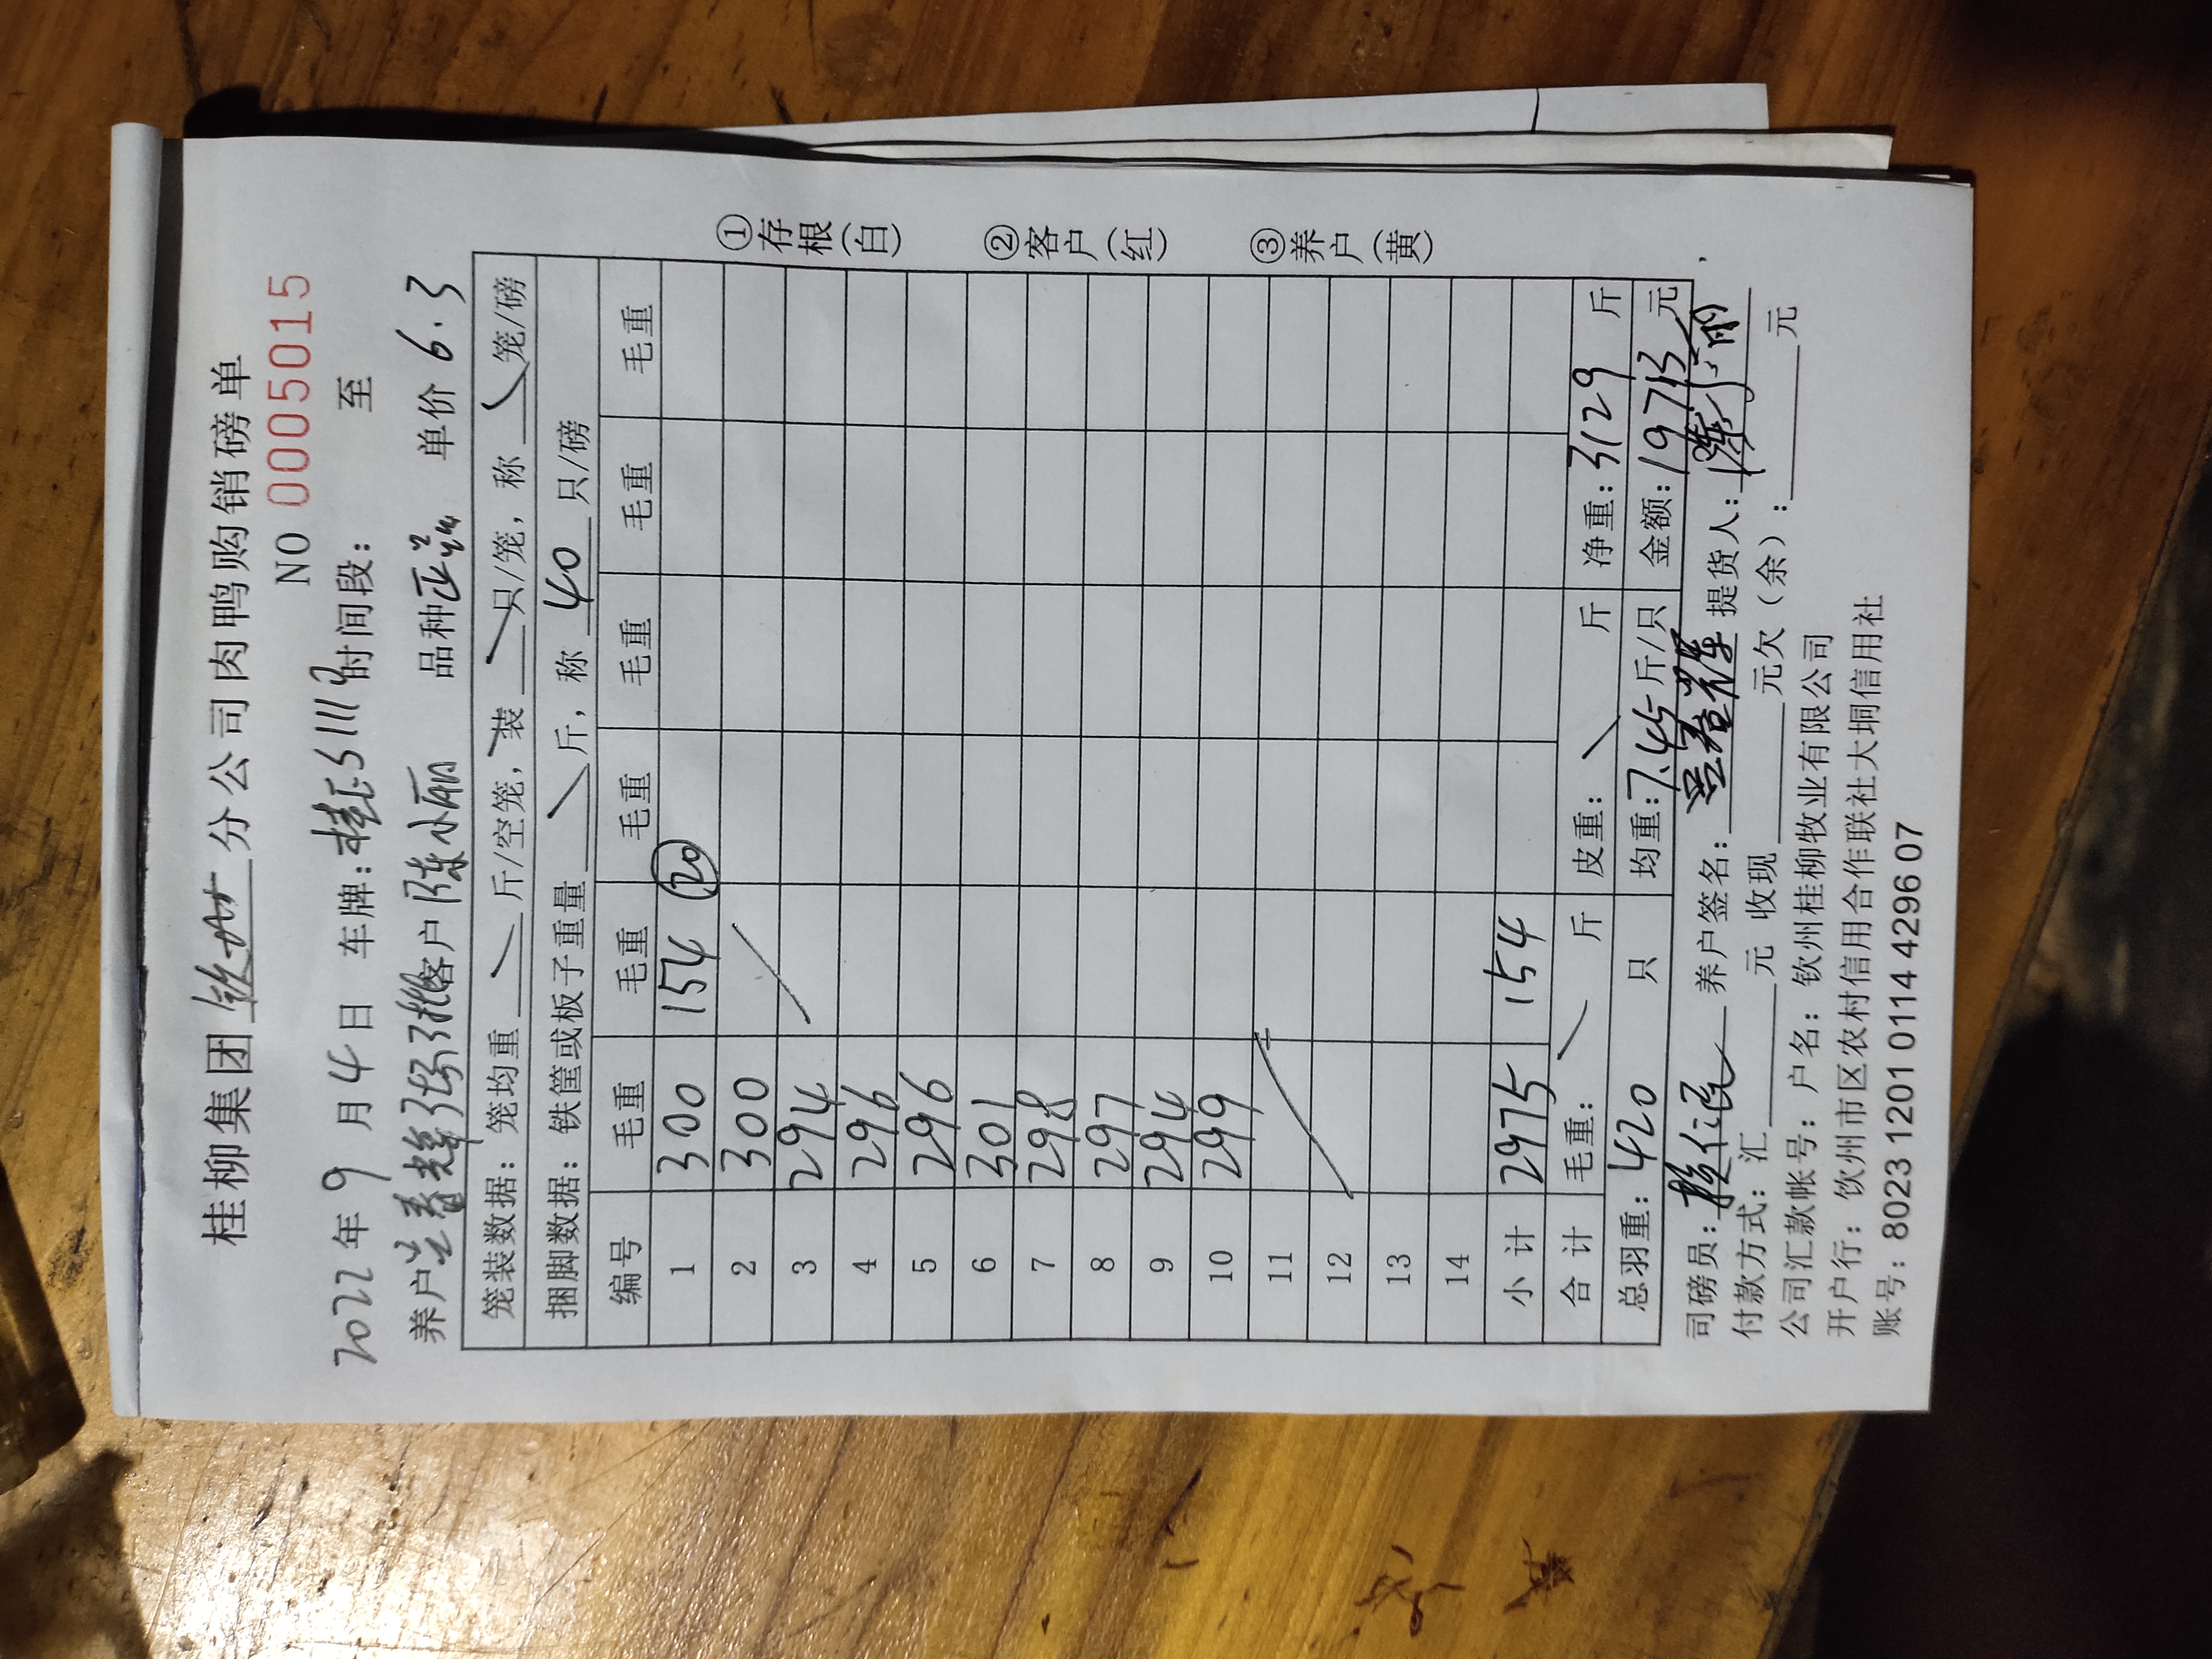 桂柳集团 分公司肉鸭购销磅单
NO 0005015
2022年9月4日 车牌: 时间段： 至
养户 客户陈小丽 品种 单价6.3
笼装数据：笼均重 斤/空笼，装 只/笼，称 笼/磅
捆脚数据：铁筐或板子重量 斤，称 40 只/磅
编号 毛重 毛重 毛重 毛重 毛重 毛重
1 300 154 20
2 300
3 294
4 296
5 296
6 301
7 298
8 297
9 294
10 299
11
12
13
14
小计 2975 154
合计 毛重： 斤 皮重： 斤 净重：3129 斤
总羽重：420 只 均重：7.45斤/只 金额：19713元
司磅员： 养户签名： 提货人：
付款方式：汇 元 收现 元欠（余）： 元
公司汇款帐号：户名：钦州桂柳牧业有限公司
开户行：钦州市区农村信用合作联社大垌信用社
账号：8023 1201 0114 4296 07
①存根（白）
②客户（红）
③养户（黄）